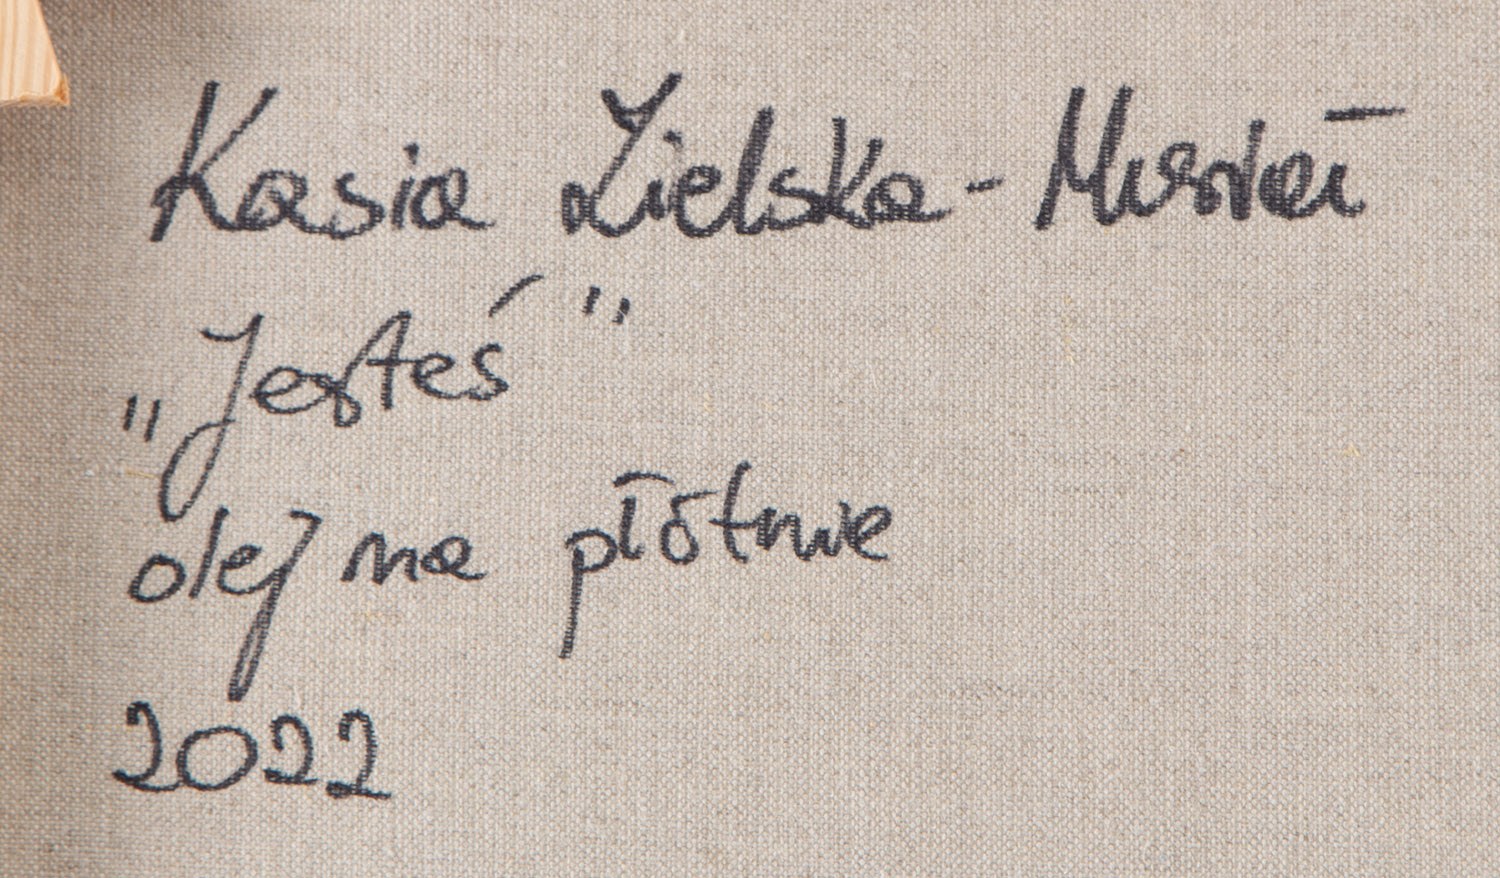 Kasia Zielska -
„Jesteś”
olej na płótnie
2022